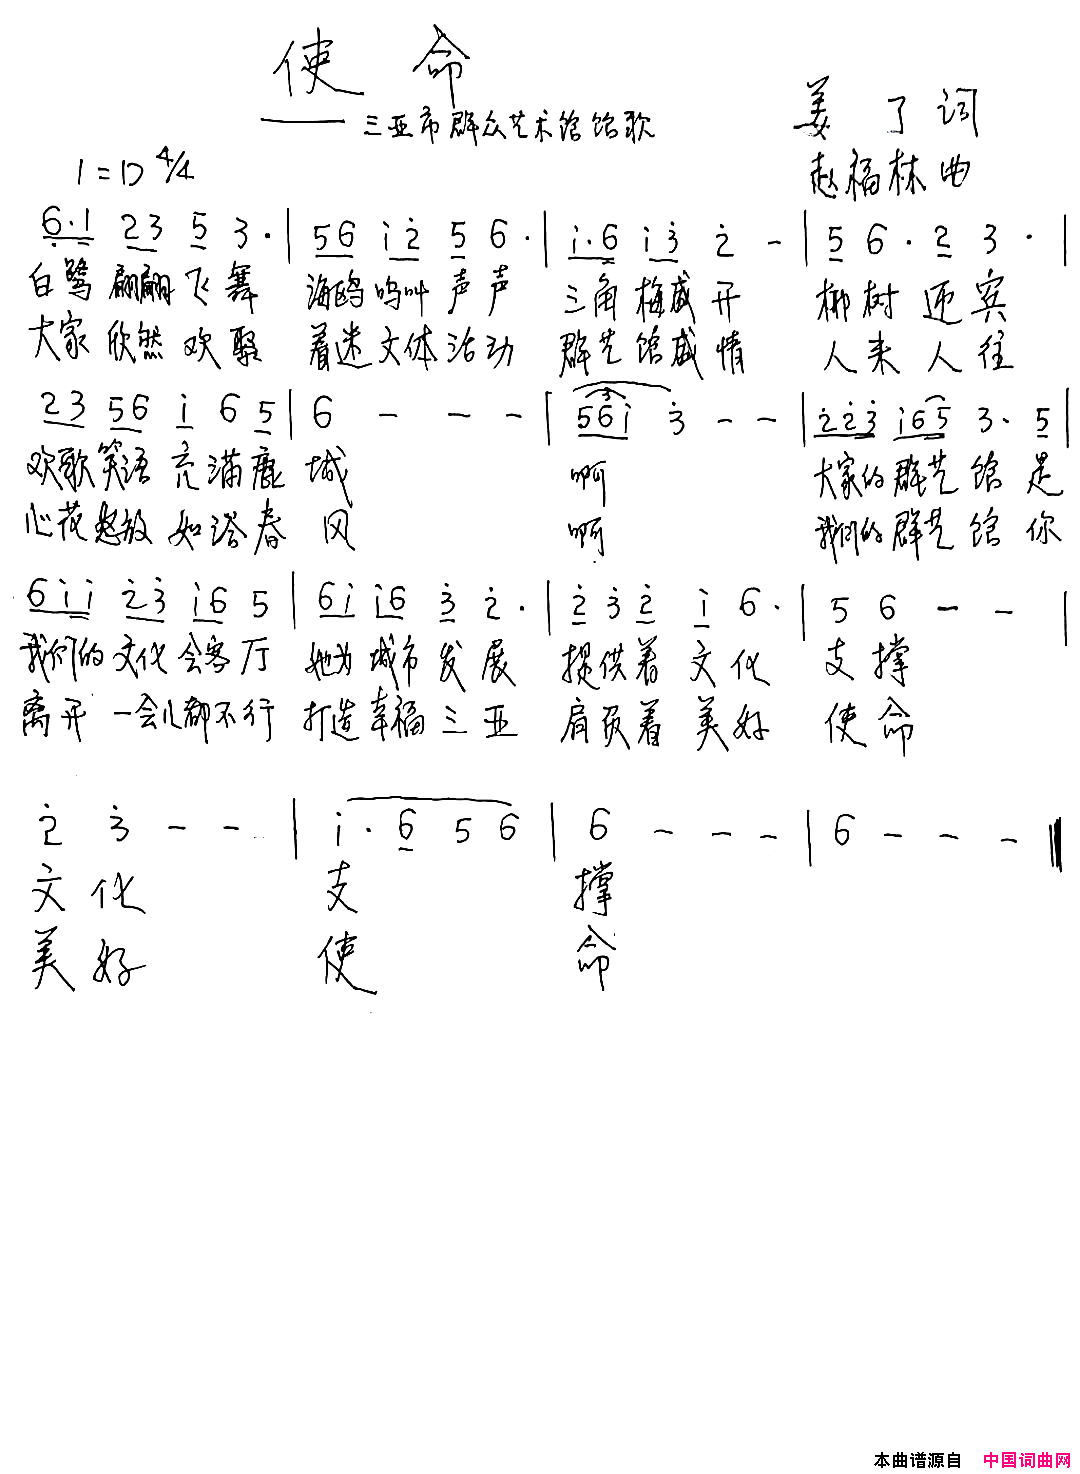 使 命
—— 三亚市群众艺术馆馆歌
姜 了 词
1=D 4/4
赵福林 曲
6·1 23 5 3· | 56 i2 5 6· | i·6 i3 2 - | 5 6· 2 3· |
白鹭 翩翩 飞 舞 海鸥 鸣叫 声 声 三角 梅盛 开 椰 树 迎 宾
大家 欣然 欢 聚 着迷 文体 活 动 群艺 馆盛 情 人 来 人 往
23 56 i 6 5 | 6 - - - | 56i 3 - - | 223 i65 3· 5 |
欢歌 笑语 充 满 鹿 城 啊 大家的 群艺 馆 是
心花 怒放 如 浴 春 风 啊 我们的 群艺 馆 你
6ii 23 i6 5 | 6i i6 3 2· | 2 3 2 i 6· | 5 6 - - |
我们的 文化 会客 厅 她为 城市 发 展 提供着 文 化 支 撑
离开 一会儿都不行 打造 幸福 三 亚 肩负着 美 好 使 命
2 3 - - | i· 6 5 6 | 6 - - - | 6 - - - ‖
文 化 支 撑
美 好 使 命
本曲谱源自 中国词曲网